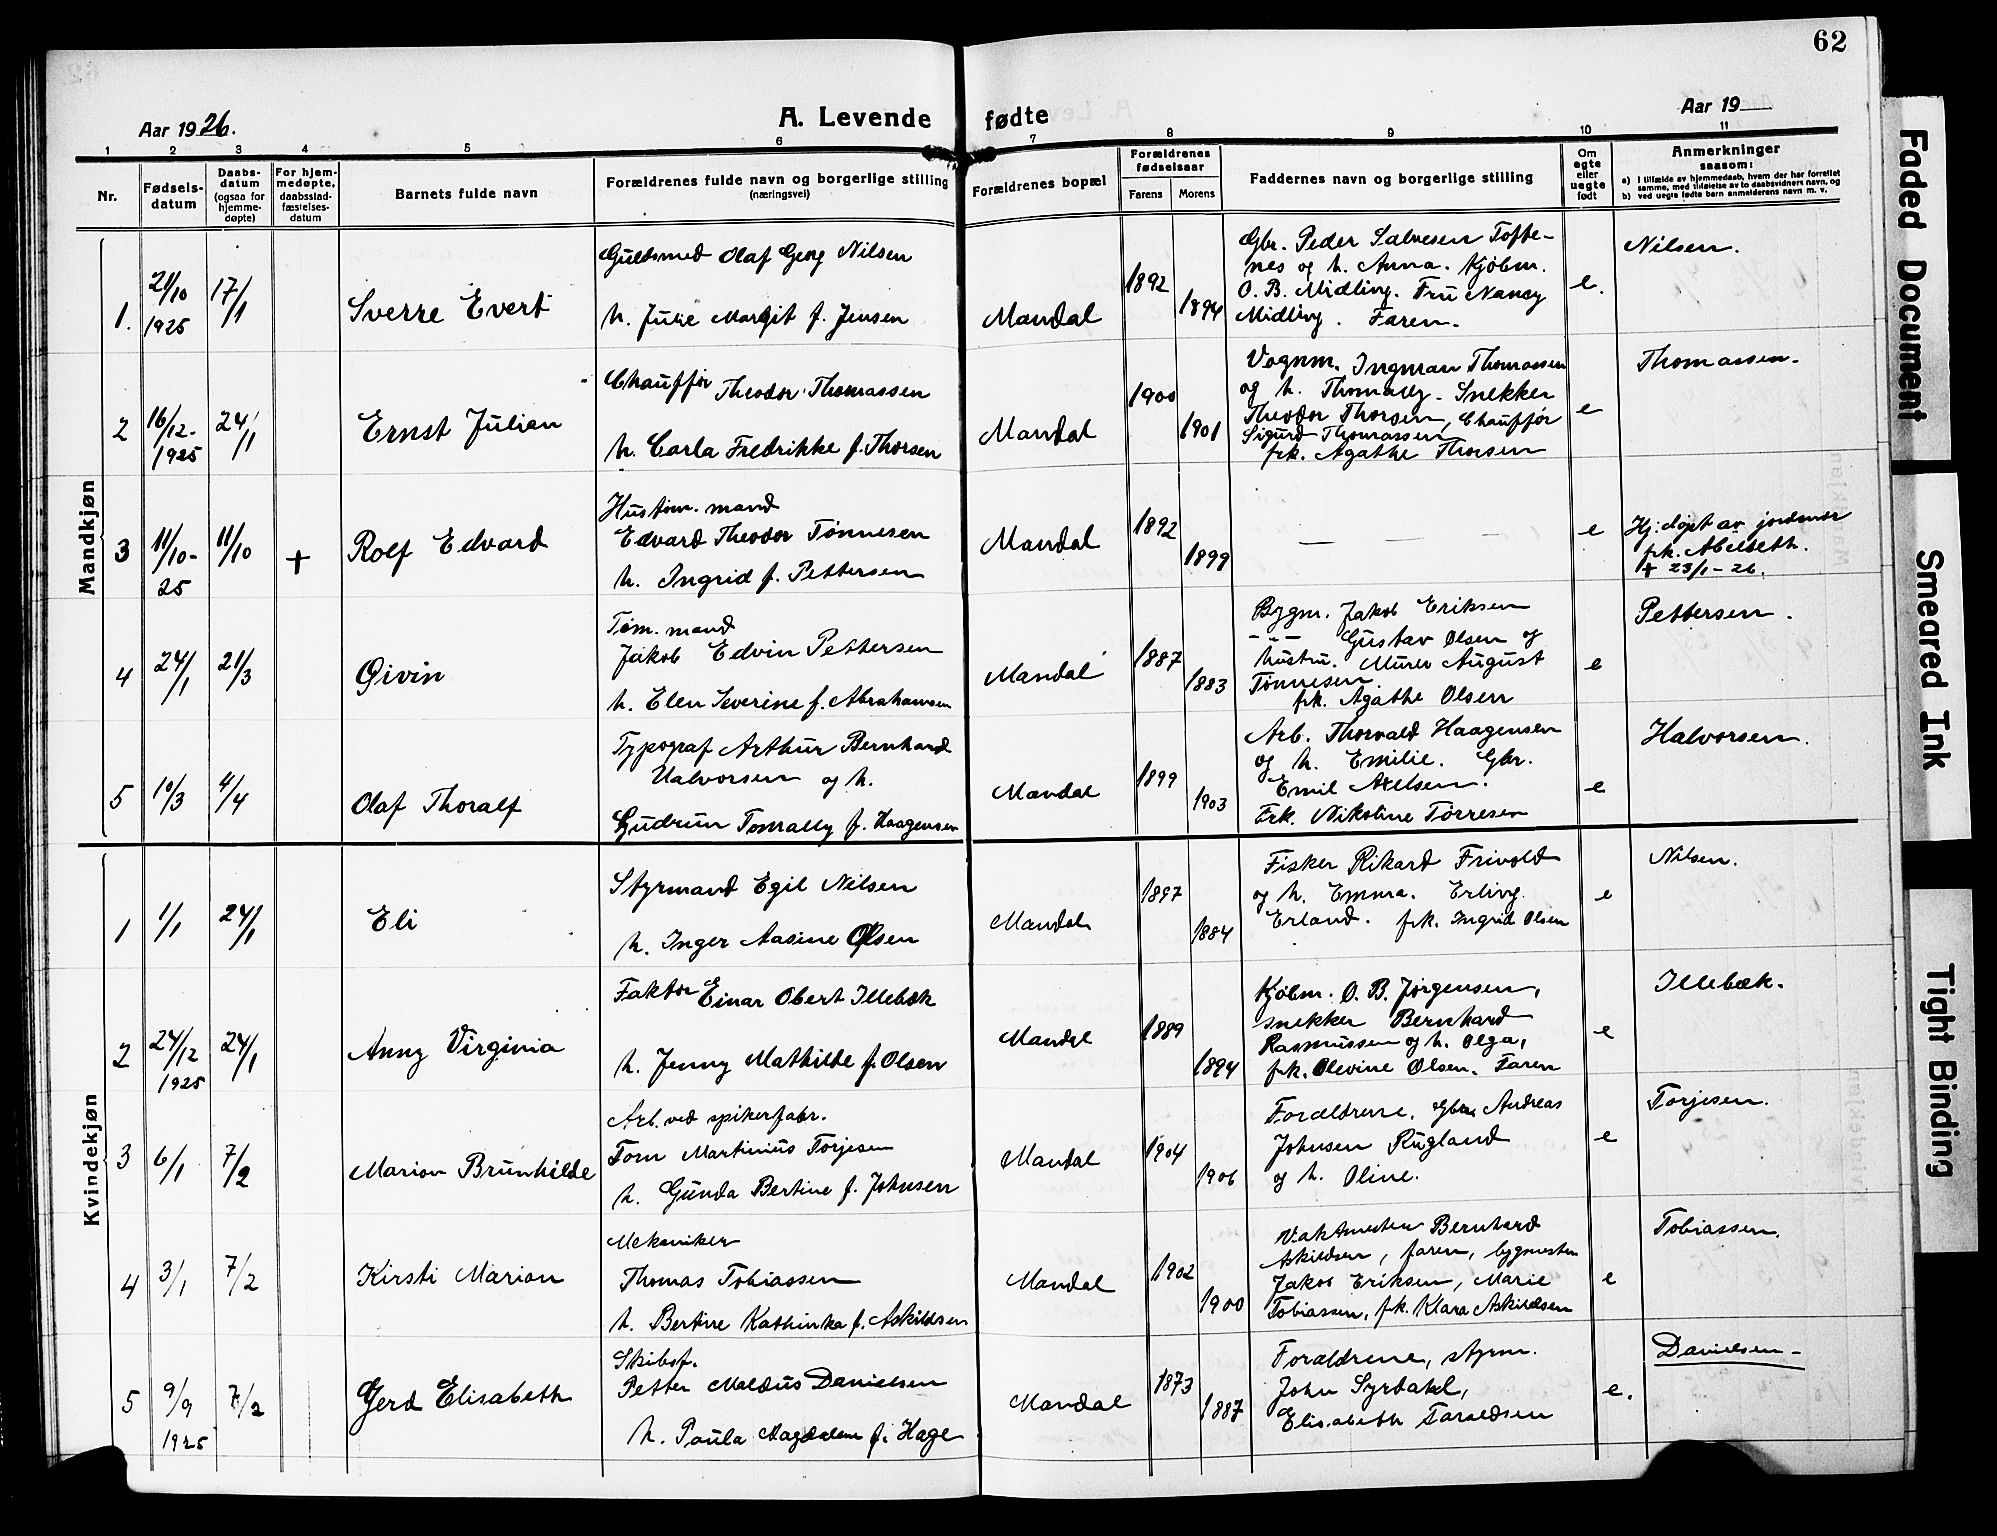 62
Aar 1926.
A. Levende fødte
Aar 19
1 2 3 4 5 6 7 8 9 10 11
Nr.
Fødsels-
datum
Daabs-
datum
(ogsaa for
hjemme-
døpte)
For hjem-
medøpte,
daabsstad-
fæstelses-
datum
Barnets fulde navn
Forældrenes fulde navn og borgerlige stilling
(næringsvei)
Forældrenes bopæl
Forældrenes
fødselsaar
Farens
Morens
Faddernes navn og borgerlige stilling
Om
egte
eller
uegte
født
Anmerkninger
saasom:
a) I tilfælde av hjemmedaab, hvem der har forrettet
samme, med tilføielse av to daabsvidners navn, og
b) ved uegte fødte barn anmelderens navn m. v.
Mandkjøn
1.
21/10
1925
17/1
Sverre Evert
Guldsmed Olaf Georg Nilsen
h. Julie Margit f. Jensen
Mandal
1892
1894
Gbr. Peder Salvesen Tofte-
nes og h. Anna. Kjøbm.
O. B. Midling. Fru Nancy
Midling. Faren.
e.
Nilsen.
2
16/12-
1925
24/1
Ernst Julian
Chauffør Theodor Thomassen
h. Carla Fredrikke f. Thorsen
Mandal
1900
1901
Vognm. Ingman Thomassen
og h. Thomally. Snekker
Theodor Thorsen, Chauffør
Sigurd Thomassen
frk. Agathe Thorsen
e
Thomassen.
3
11/10-
25
11/10
+
Rolf Edvard
Hustøm. mand
Edvard Theodor Tønnesen
h. Ingrid f. Pettersen
Mandal
1892
1899
— — — —
e
Hj. døpt av jordmor
frk. Abelseth.
+ 23/1 - 26.
4
24/1
21/3
Øivin
Tøm. mand
Jakob Edvin Pettersen
h. Elen Severine f. Abrahamsen
Mandal
1887
1883
Bygm. Jakob Eriksen
- " - Gustav Olsen og
hustru. Murer August
Tønnesen
frk. Agathe Olsen
e
Pettersen.
5
10/3
4/4
Olaf Thoralf
Typograf Arthur Bernhard
Halvorsen og h.
Gudrun Tomally f. Haagensen
Mandal
1899
1903
Arb. Thorvald Haagensen
og h. Emilie. Gbr.
Emil Axelsen.
Frk. Nikoline Tørresen
e
Halvorsen.
Kvindekjøn
1
1/1
24/1
Eli
Styrmand Egil Nilsen
h. Inger Aasine Olsen
Mandal
1897
1884
Fisker Rikard Frivold
og h. Emma. Erling
Erland. frk. Ingrid Olsen
e
Nilsen.
2
24/12
1925
24/1
Anny Virginia
Faktor Einar Obert Illebæk
h. Jenny Mathilde f. Olsen
Mandal
1889
1894
Kjøbm. O. B. Jørgensen,
snekker Bernhard
Rasmussen og h. Olga,
frk. Olevine Olsen. Faren
e
Illebæk.
3
6/1
7/2
Marion Brunhilde
Arb. ved spikerfabr.
Tom Martinius Torjesen
h. Gunda Bertine f. Johnsen
Mandal
1904
1906
Forældrene. Gbr. Andreas
Johnsen Rugland
og h. Oline.
e
Torjesen.
4
3/1
7/2
Kirsti Marion
Mekaniker
Thomas Tobiassen
h. Bertine Kathinka f. Askildsen
Mandal
1902
1900
Vaktmester Bernhard
Askildsen, faren, bygmester
Jakob Eriksen, Marie
Tobiassen, frk. Klara Askildsen
e
Tobiassen.
5
9/9
1925
7/2
Gerd Elisabeth
Skibsf.
Petter Maldus Danielsen
h. Paula Magdalene f. Hage
Mandal
1873
1887
Forældrene, styrm.
John Syrdahl,
Elisabeth Taraldsen
e.
Danielsen
Faded Document
Smeared Ink
Tight Binding